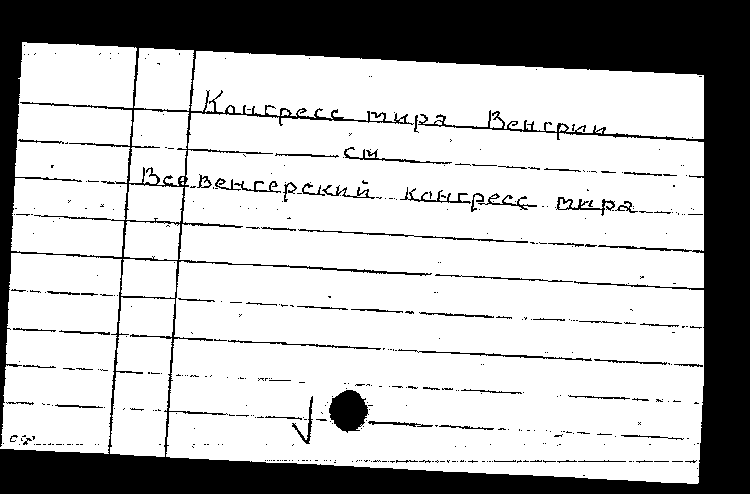 Конгресс мира Венгрии
см
Всевенгерский конгресс мира